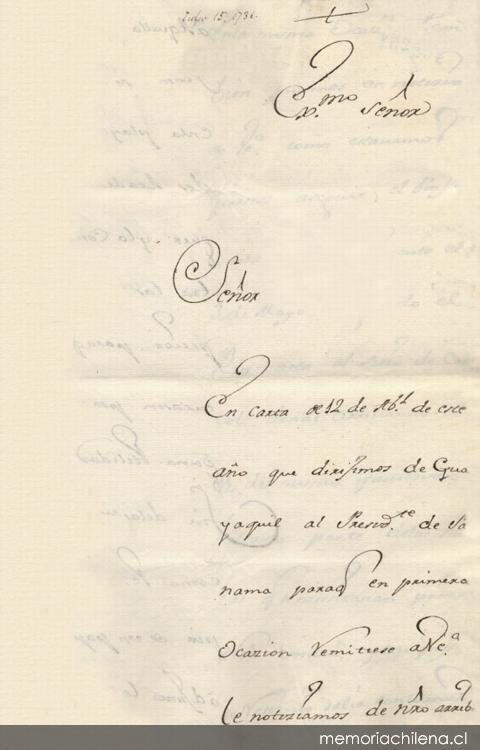 Julio 15, 1736.
Ex.mo Señor
Señor
En carta de 12 de Ab.l de este
año que dirijimos de Gua
yaquil al Presid.te de Pa
nama paraq en primera
Ocazion Remitiese a V.e.a
le notiziamos de nr̃o arrib
memoriachilena.cl